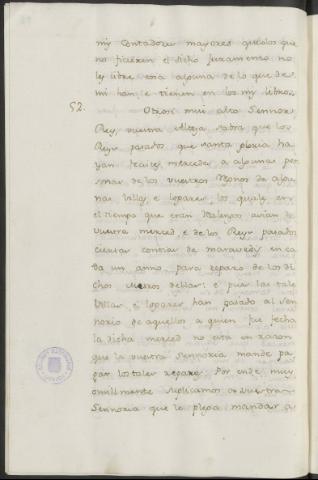 mis Contadores mayores que los que
no ficieren el dicho juramento no
les libren cosa alguna de lo que de
mi han, e tienen en los mis libros.
52. Otrosi mui alto Sennor
Rey, vuestra Alteza sabra que los
Reys pasados, que santa gloria ha
yan fecistes mercedes a algunas per
sonas de los vuestros Regnos de algu
nas villas, e logares los quales en
el tiempo que eran Realengos avian de
vuestra merced, e de los Reys pasados
ciertas contias de maravedis en ca
da un anno para reparo de los di
chos muros dellas: e pues las tales
villas, e logares han pasado al sen
norio de aquellos a quien fue fecha
la dicha merced no esta en razon
que la vuestra Sennoria mande pa
gar los tales reparos. Por ende muy
omillmente suplicamos a vuestra
Sennoria que le plega mandar a